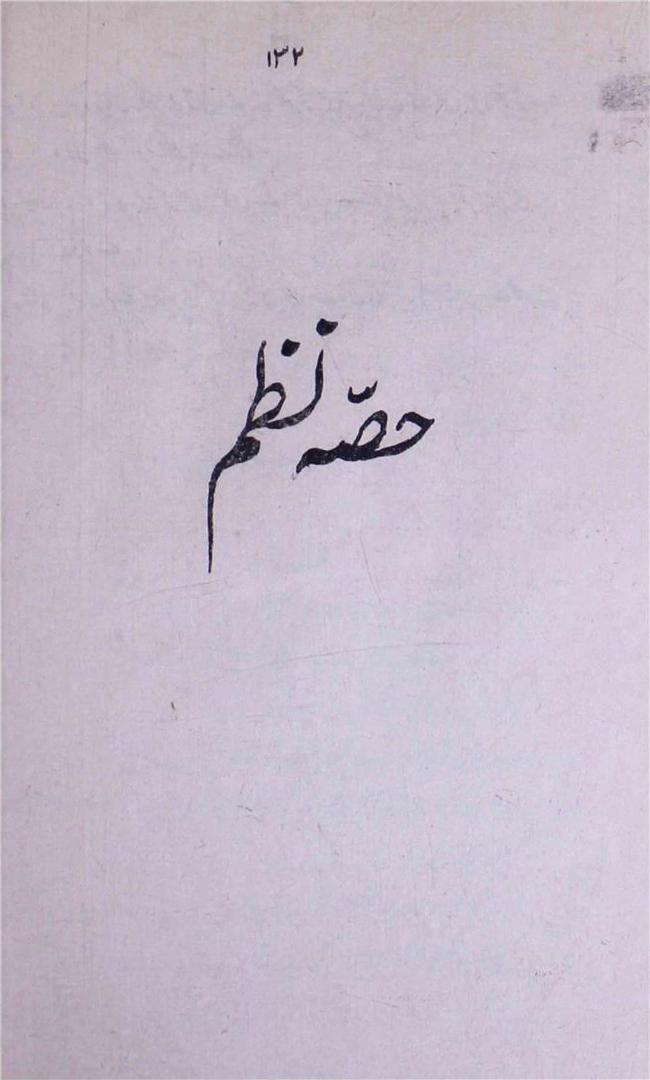 ۱۳۲
حصّہ نظم